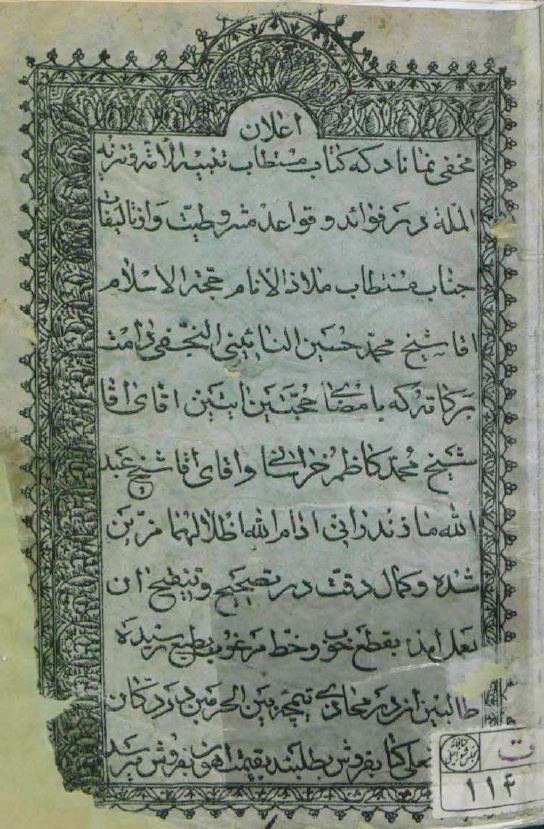 اعلان
مخفی نماناد که کتاب مستطاب تنبیه الامة و تنزیه
الملة در فوائد و قواعد مشروطیت و از تالیفات
جناب مستطاب ملاذ الانام حجة الاسلام
اقا شیخ محمد حسین النائینی النجفی دامت
برکاته که بامضای حجتین ایتین اقای اقا
شیخ محمد کاظم خراسانی و اقای اقا شیخ عبد
الله مازندرانی ادام الله اظلالهما مزین
شده و کمال دقت در تصحیح و تنقیح ان
بعمل امده بقطع خوب و خط مرغوب بطبع رسیده
طالبین از در محاذی تیمچه بین الحرمین در دکان
علی کتابفروش بطلبند بقیمت بفروش میرسد
ت
۱۱۴